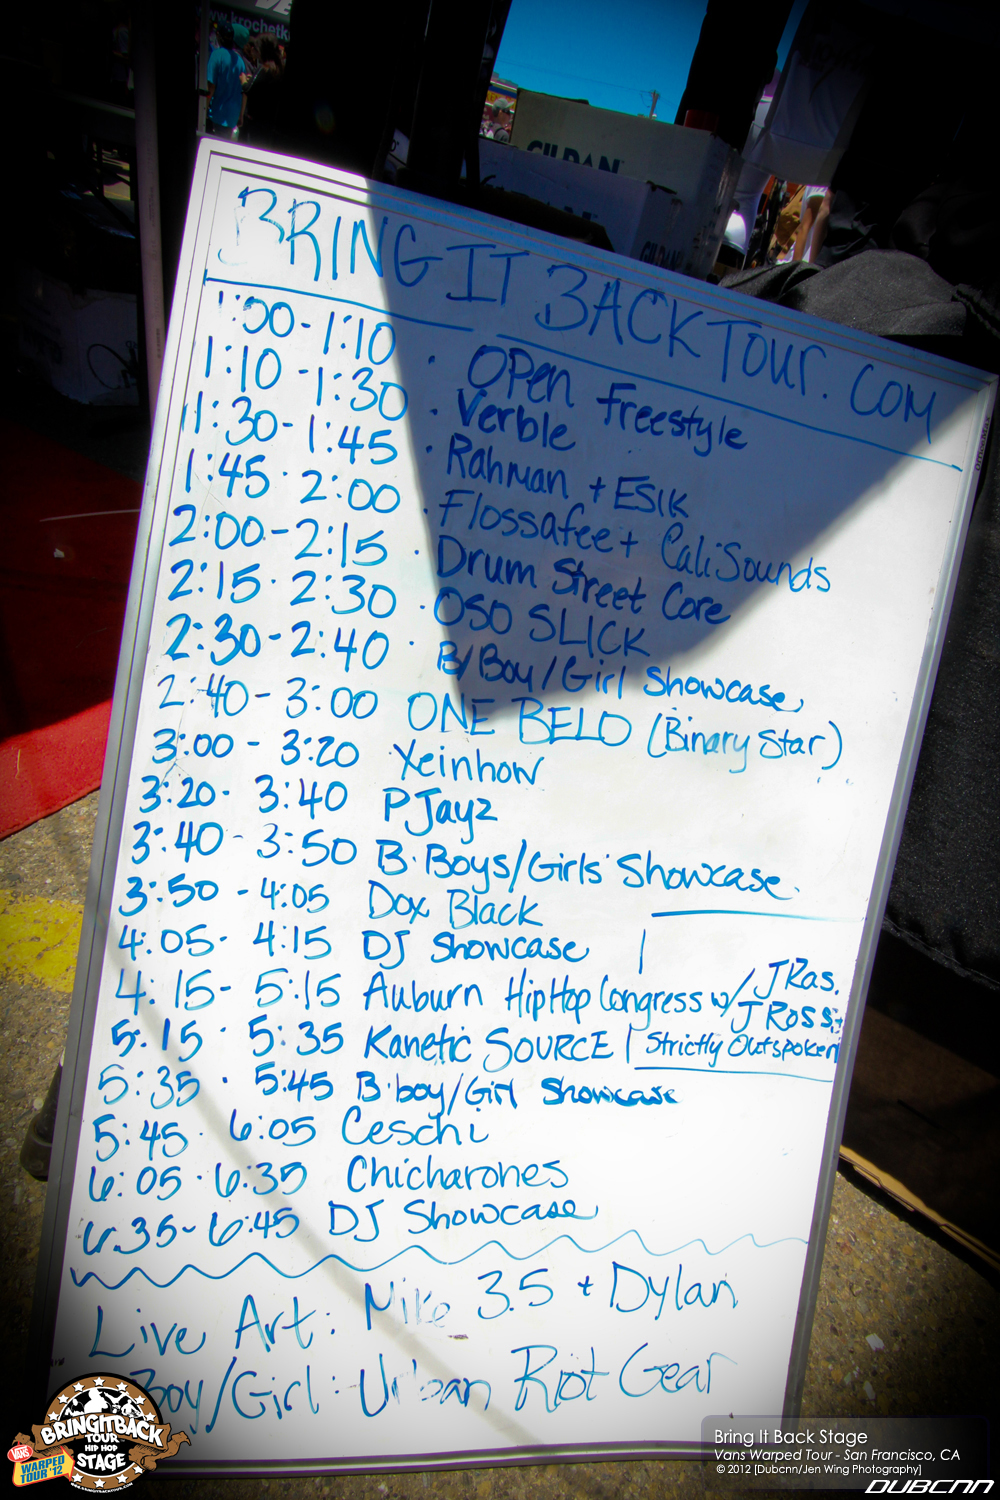 www.krochetk
GILDAN
GILDAN
BRING IT BACK TOUR.COM
1:00-1:10 · OPen freestyle
1:10-1:30 · Verble
1:30-1:45 · Rahman + ESIK
1:45-2:00 · Flossafee + CaliSounds
2:00-2:15 · Drum Street Core
2:15-2:30 · OSO SLICK
2:30-2:40 · B/Boy/Girl Showcase
2:40-3:00 ONE BELO (Binary Star)
3:00-3:20 Xeinhow
3:20-3:40 PJayz
3:40-3:50 B.Boys/Girls Showcase.
3:50-4:05 Dox Black
4:05-4:15 DJ Showcase
4:15-5:15 Auburn HipHop Congress w/ J Ras,
J Ross, +
Strictly Outspoken
5:15-5:35 Kanetic SOURCE
5:35-5:45 B.boy/Girl Showcase
5:45-6:05 Ceschi
6:05-6:35 Chicharones
6:35-6:45 DJ Showcase
Live Art: Mike 3.5 + Dylan
Boy/Girl: Urban Riot Gear
BRINGITBACK
TOUR
HIP HOP
STAGE
VANS
WARPED
TOUR '12
WWW.BRINGITBACKTOUR.COM
Bring It Back Stage
Vans Warped Tour - San Francisco, CA
© 2012 [Dubcnn/Jen Wing Photography]
DUBCNN